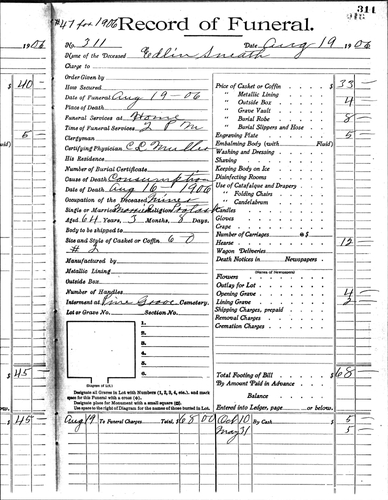 311
#47 for 1906 Record of Funeral.
1906 No. 311 Date Aug 19 1906
Name of the Deceased Edlin Sneath
Charge to
Order Given by
$ 40 How Secured Price of Casket or Coffin $ 33
Date of Funeral Aug 19-06 " Metallic Lining
Place of Death " Outside Box 4
Funeral Services at Home " Grave Vault
Time of Funeral Services 2 PM " Burial Robe 8
Clergyman " Burial Slippers and Hose
5 Certifying Physician Engraving Plate 5
Fluid) His Residence Embalming Body (with Fluid)
Number of Burial Certificate Washing and Dressing
Cause of Death Consumption Shaving
Date of Death Aug 16 1906 Keeping Body on Ice
Occupation of the Deceased Miner Disinfecting Rooms
Single or Married Religion Use of Catafalque and Drapery
Aged 64 Years, 3 Months, 8 Days. " Folding Chairs
Body to be shipped to " Candelabrum
Size and Style of Casket or Coffin 6 0 Candles
Manufactured by Gloves
Metallic Lining Crape
Outside Box Number of Carriages @ $
Number of Handles Hearse 12
Interment at Pine Grove Cemetery. Wagon Deliveries
Lot or Grave No. Section No. Death Notices in Newspapers
(Names of Newspapers)
Flowers
Outlay for Lot
Opening Grave 4
Lining Grave 2
Shipping Charges, prepaid
Removal Charges
Cremation Charges
1.
2.
3.
4.
5.
6.
Diagram of Lot
$ 45 Total Footing of Bill $ 68
Designate all Graves in Lot with Numbers (1, 2, 3, 4, etc.), and mark space for this Funeral with a cross (+). By Amount Paid in Advance
Designate place for Monument with a small square (□). Balance
Use space to the right of Diagram for the names of those buried in Lot. Entered into Ledger, page or below.
45 Aug 19 To Funeral Charges Total, $ 68 00 Oct 10 By Cash 5
May 31 5